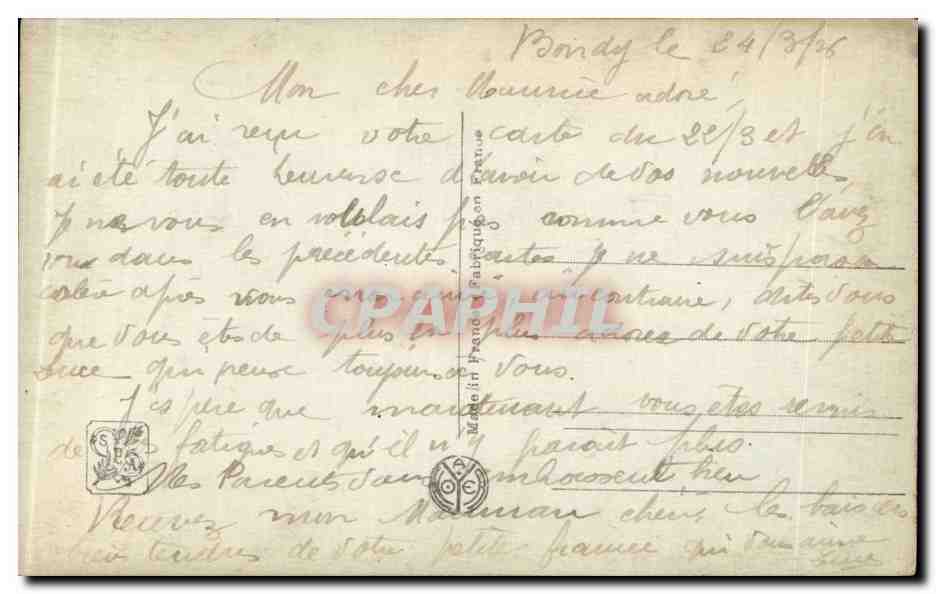 Bondy le 24/3/26
Mon cher Maurice adoré,
J'ai reçu votre carte du 22/3 et j'en
ai été toute heureuse d'avoir de vos nouvelles,
Je ne vous en voulais pas comme vous l'avez
dans les précédentes cartes je ne suis pas en
colère après vous mon au contraire, dites vous
que vous êtes de plus en plus de votre petite
Luce qui pense toujours à vous.
J'espère que maintenant vous êtes remis
de vos fatigues et qu'il n'y paraît plus.
Mes Parents vous embrassent bien
Recevez mon Maurice chéri, les baisers
bien tendres de votre petite fiancée qui vous aime
Luce
Made in France - Fabriqué en France
CPAPHIL